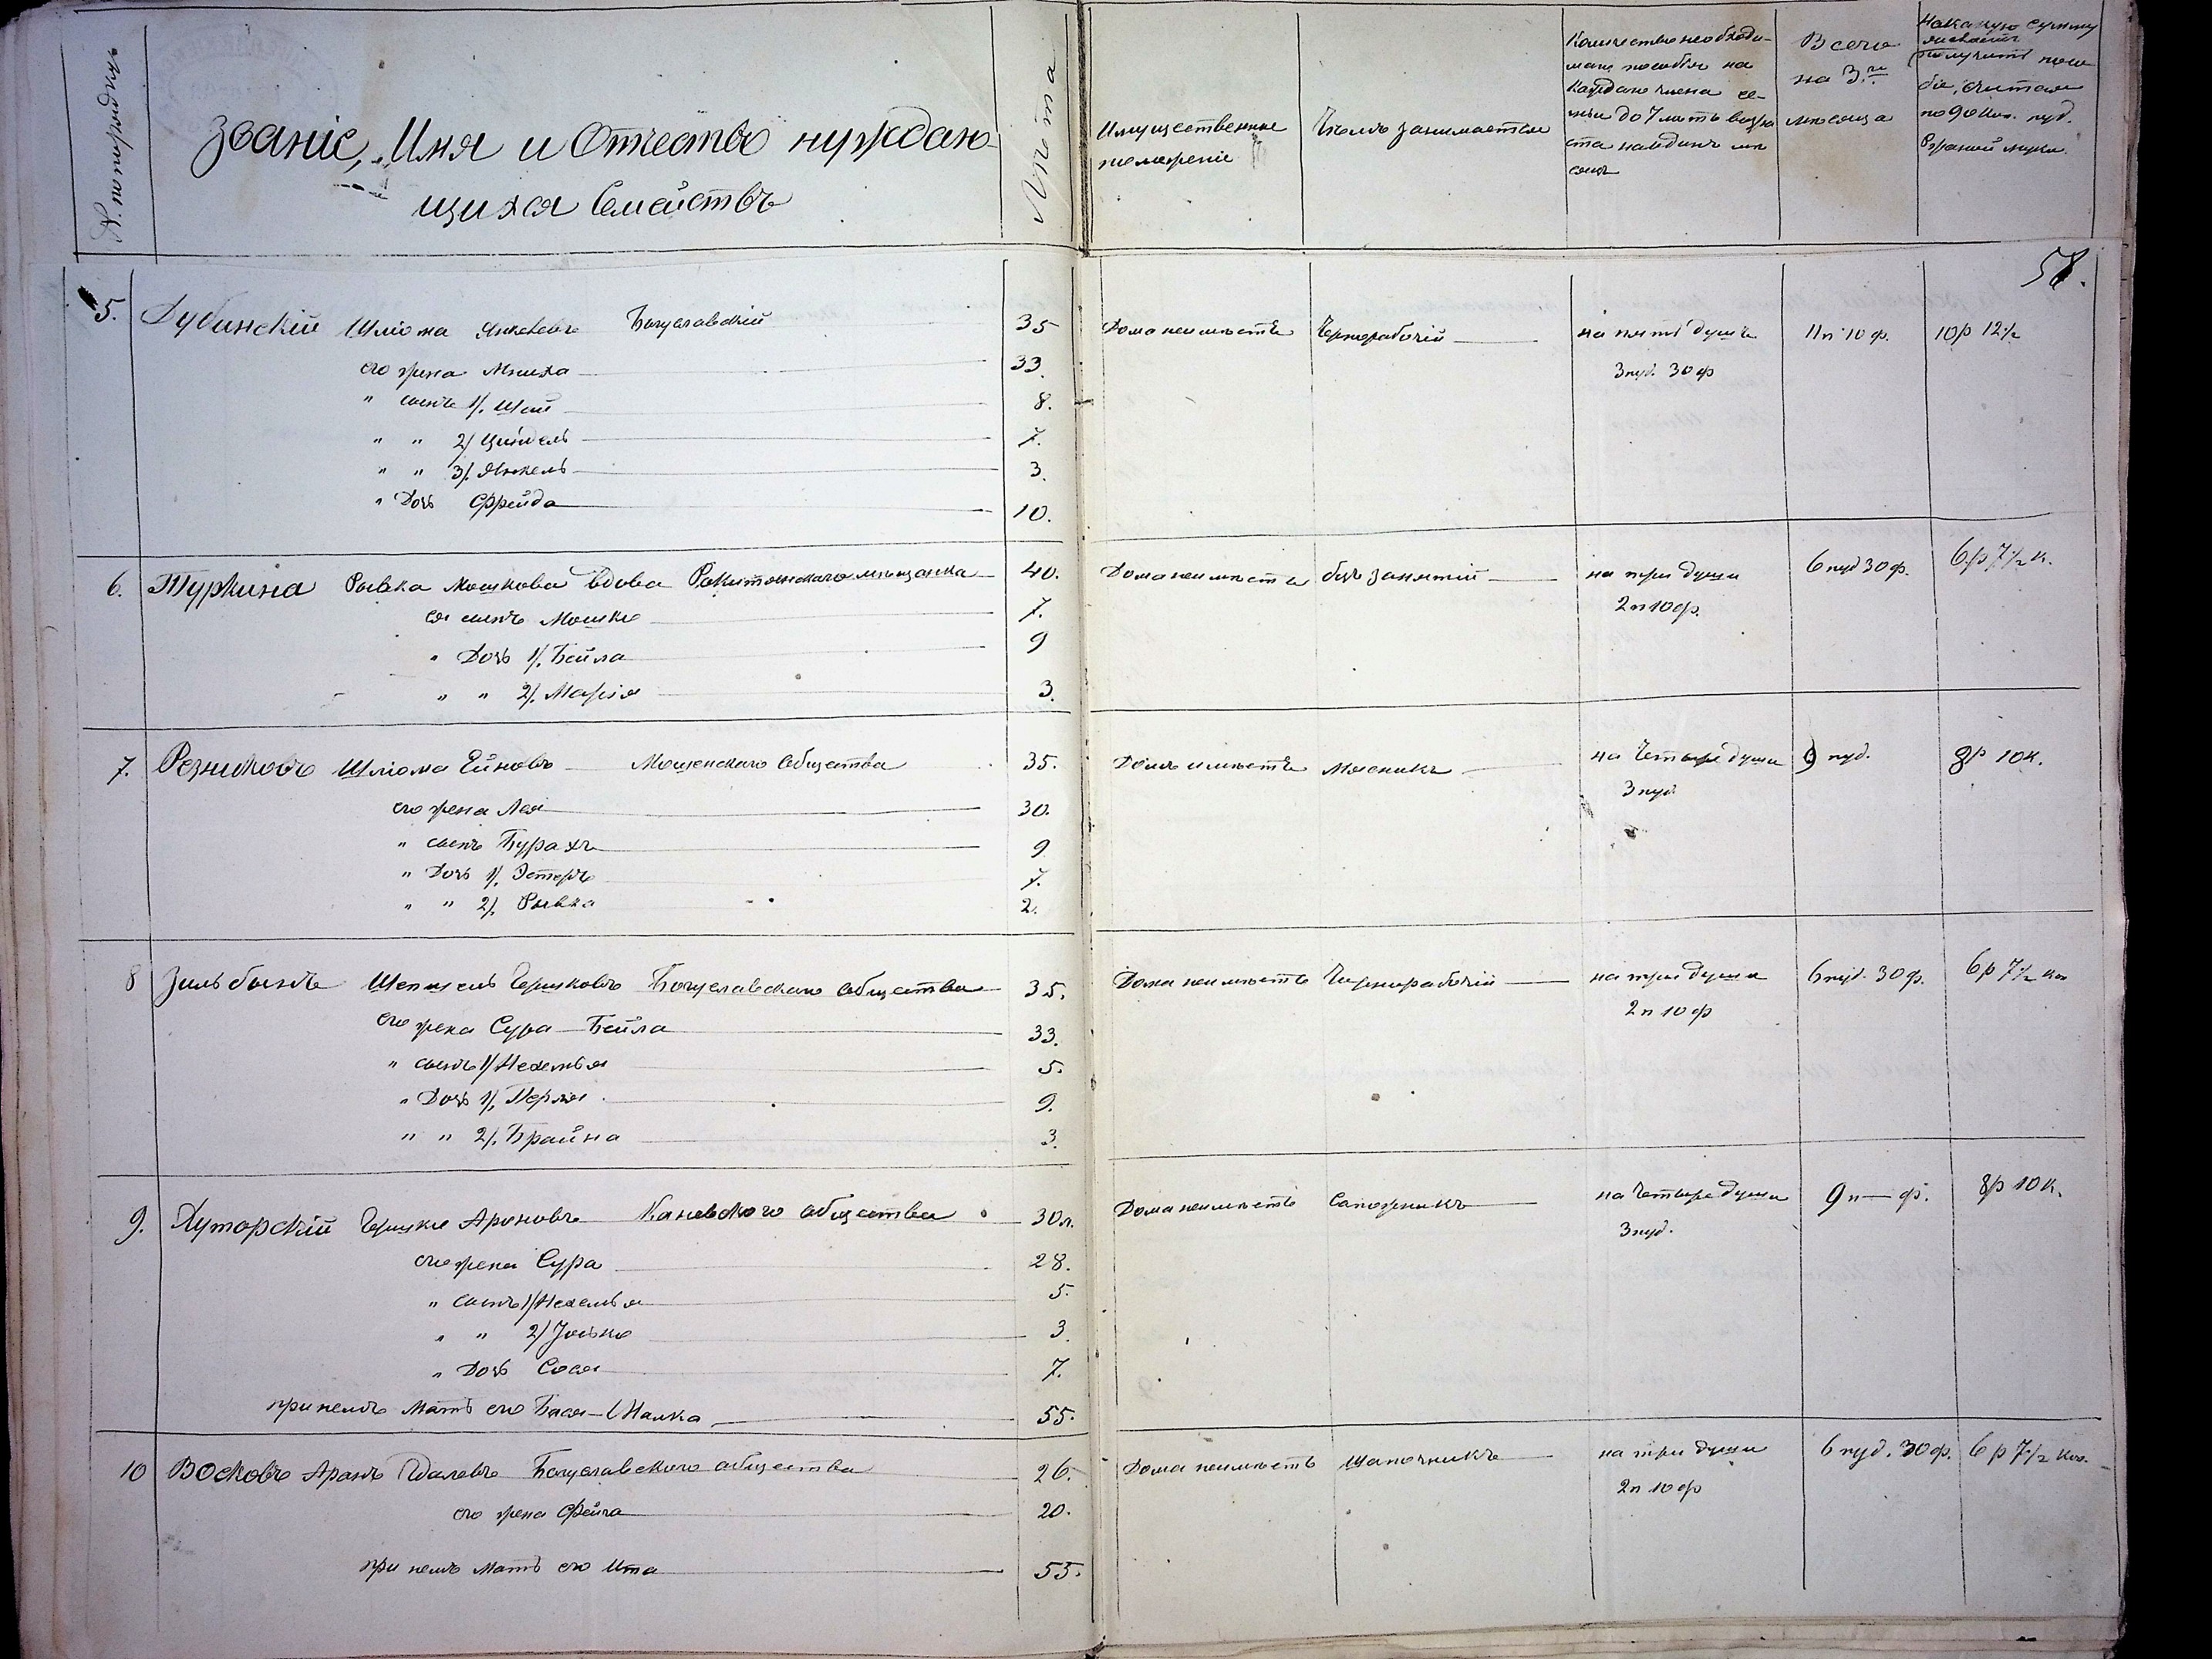 № по порядку
Званіе, Имя и Отчество нуждаю-
щихся Семействъ
Лѣта
Имущественное
положеніе
Чѣмъ занимается
Количество необходи-
маго пособія на
каждаго члена се-
мьи до 7 лѣтъ возра
ста на одинъ мѣ
сяцъ
Всего
на 3и
мѣсяца
На какую сумму
получитъ посо
біе, считая
по 90 коп. пуд.
Ржаной муки.
58.
5. Дубинскій Шліома Янкелевъ Богуславскій 35 Дома неимѣетъ Чернорабочій на пять душъ 11 п 10 ф. 10 р 12 ½
его жена Мниха 33. 3 пуд. 30 ф
" сынъ 1/. Шай 8.
" " 2/ Цийдель 7.
" " 3/. Янкель 3.
" Дочь Фрейда 10.
6. Туркина Рывка Мошкова вдова Ракитянская мѣщанка 40. Дома неимѣетъ безъ занятій на три души 6 пуд 30 ф. 6 р 7 ½ к.
ея сынъ Мошко 7. 2 п 10 ф.
" Дочь 1/. Бейла 9
" " 2/. Марія 3.
7. Резниковъ Шліома Ейновъ Мошенскаго Общества 35. Домъ имѣетъ Мясникъ на Четыре души 9 пуд. 8 р 10 к.
его жена Лея 30. 3 пуд
" сынъ Бурахъ 9
" Дочь 1/. Эстеръ 7.
" " 2/. Рывка 2.
8 Зильбынъ Шепсель Гершковъ Богуславскаго общества 35. Дома неимѣетъ Чернорабочій на три души 6 пуд. 30 ф. 6 р 7 ½ коп
его жена Сура-Бейла 33. 2 п 10 ф
" сынъ 1/ Нехемья 5.
" Дочь 1/. Перля 9.
" " 2/. Брайна 3.
9. Хуторскій Герцко Ароновъ Каневского общества 30 л. Дома неимѣетъ Сапожникъ на Четыре души 9 п — ф. 8 р 10 к.
его жена Сура 28. 3 пуд.
" сынъ 1/ Нехемья 5.
" " 2/ Іосько 3.
" Дочь Сося 7.
при немъ Мать его Бася-Малка 55.
10 Восковъ Аронъ Гдалевъ Богуславскаго общества 26. Дома неимѣетъ Шапочникъ на три души 6 пуд. 30 ф. 6 р 7 ½ коп.
его жена Фейга 20. 2 п 10 ф
при немъ Мать его Ита 55.